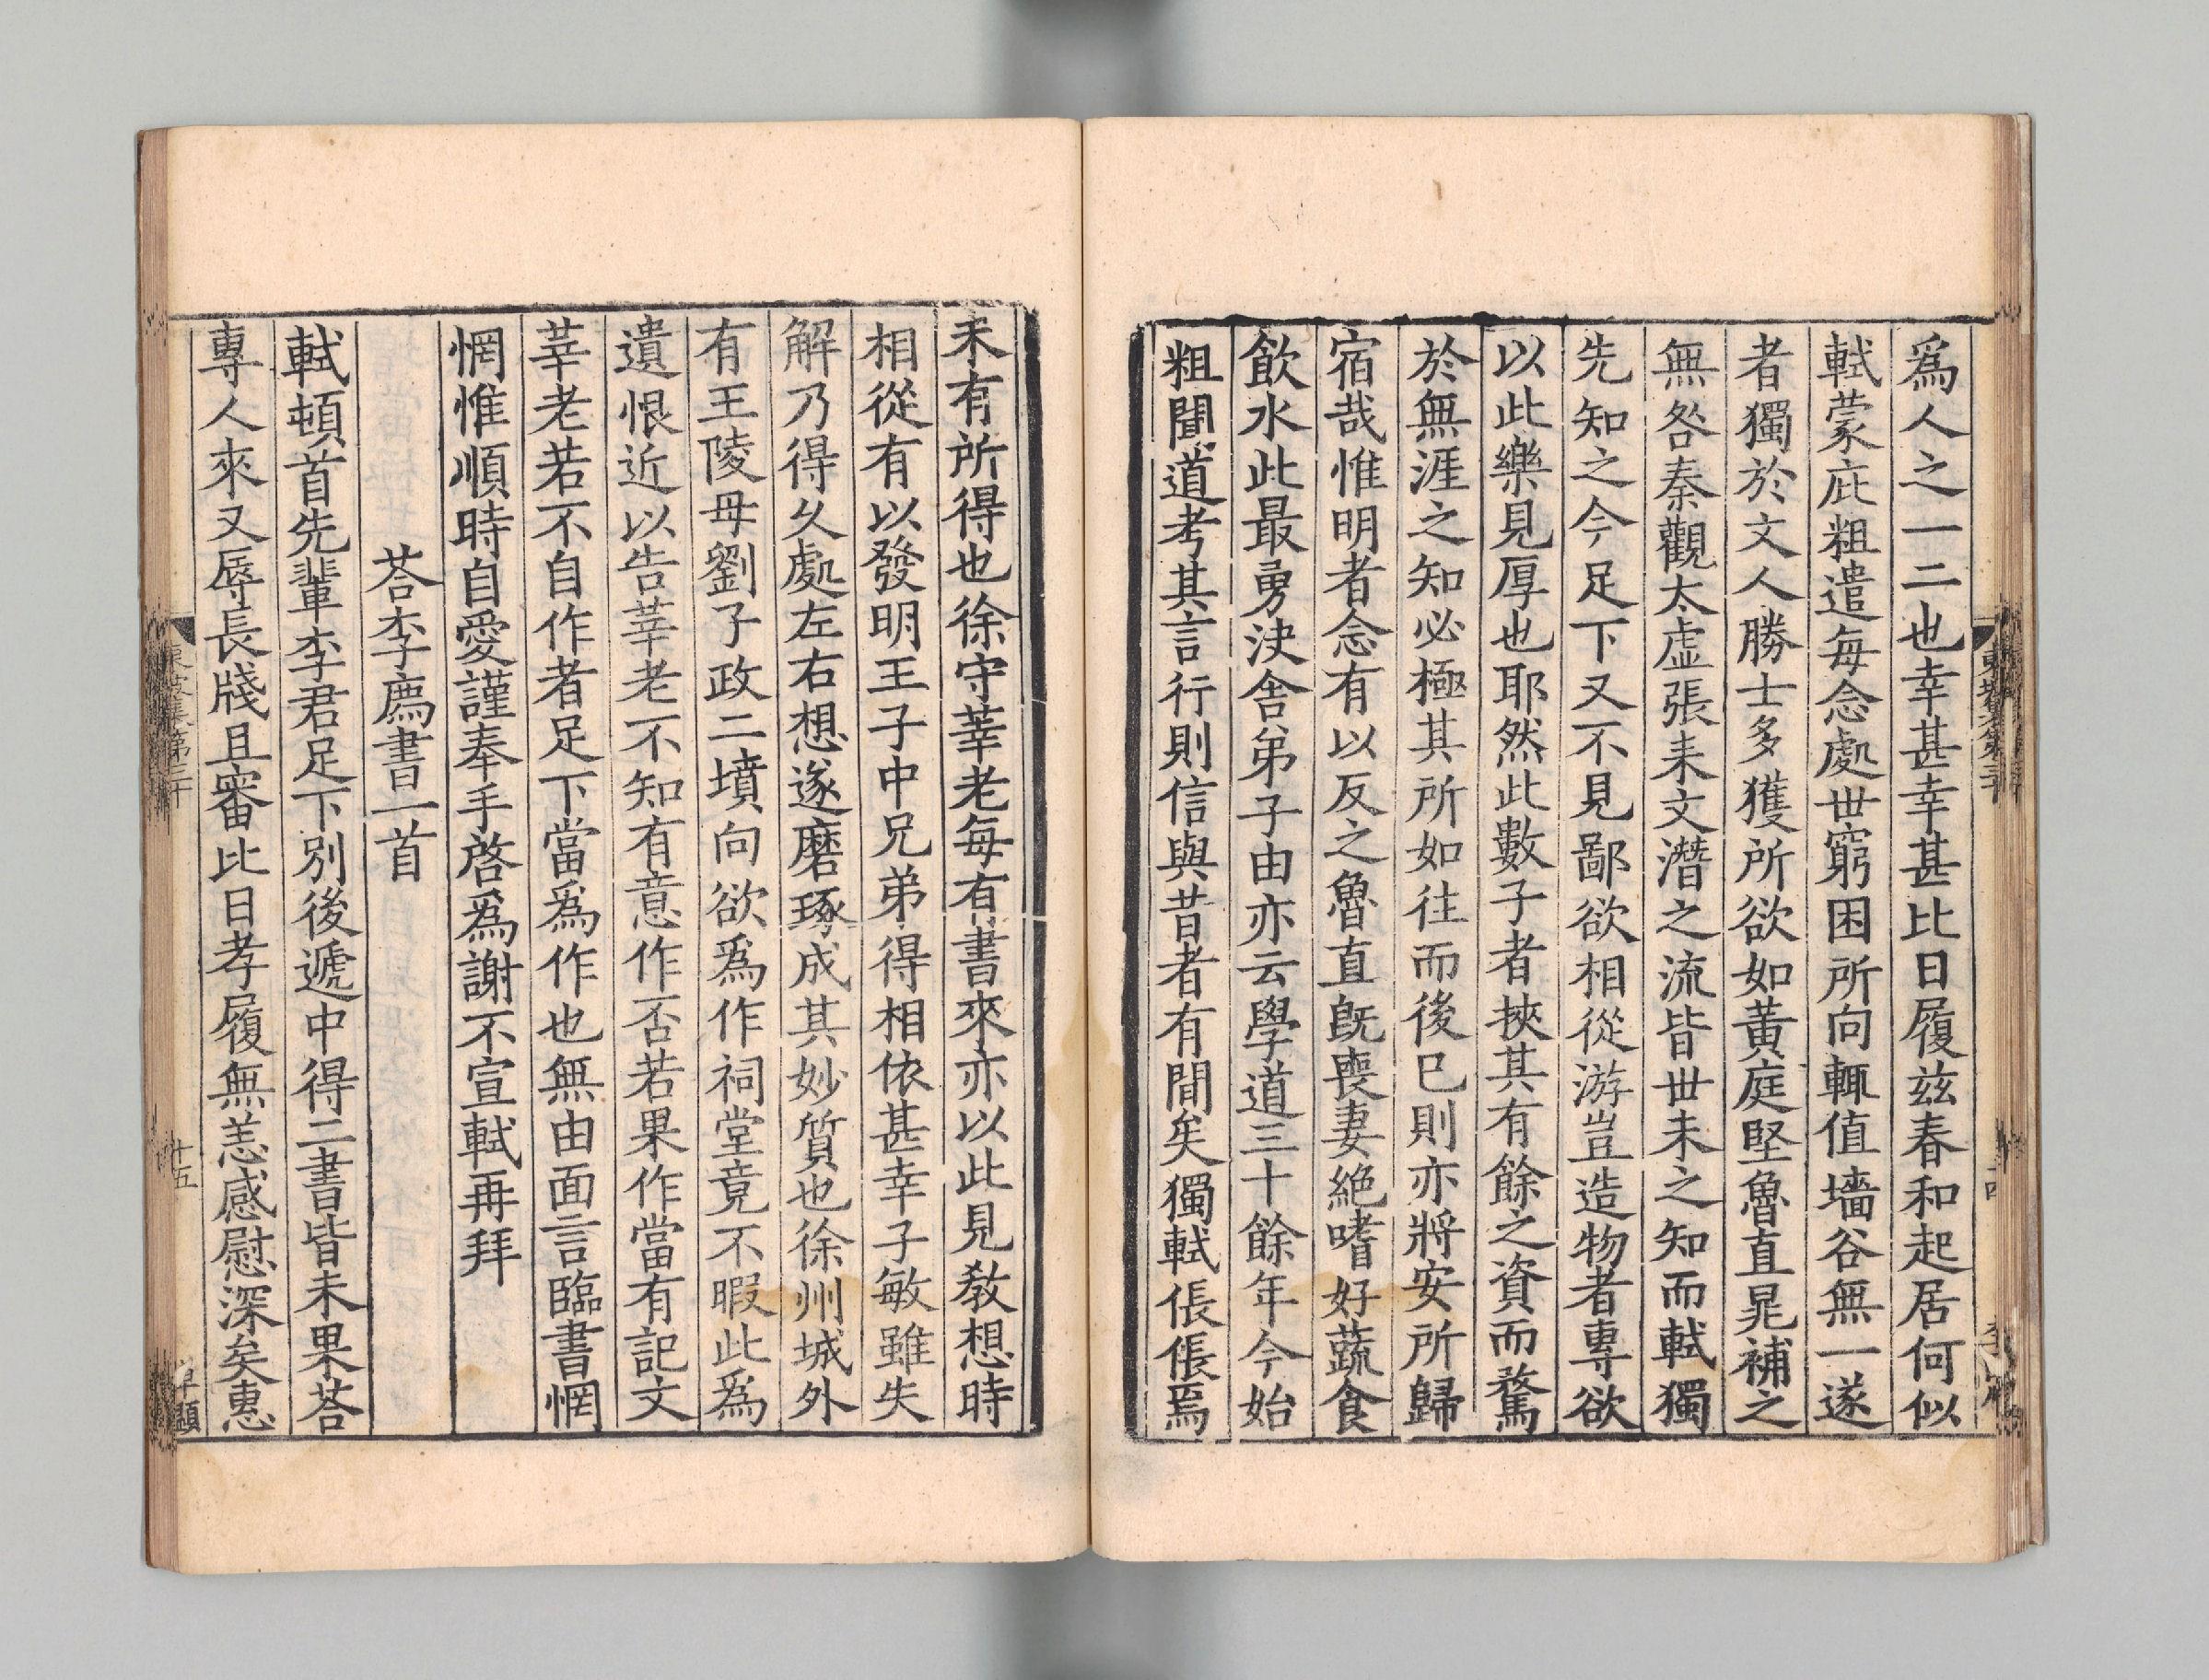 爲人之一二也幸甚幸甚比日履兹春和起居何似
軾蒙庇粗遣每念處世窮困所向輒值墻谷無一遂
者獨於文人勝士多獲所欲如黃庭堅魯直晁補之
無咎秦觀太虛張耒文潛之流皆世未之知而軾獨
先知之今足下又不見鄙欲相從游豈造物者專欲
以此樂見厚也耶然此數子者挾其有餘之資而騖
於無涯之知必極其所如往而後已則亦將安所歸
宿哉惟明者念有以反之魯直旣喪妻絕嗜好蔬食
飲水此最勇決舍弟子由亦云學道三十餘年今始
粗聞道考其言行則信與昔者有間矣獨軾倀倀焉
未有所得也徐守莘老每有書來亦以此見教想時
相從有以發明王子中兄弟得相依甚幸子敏雖失
解乃得久處左右想遂磨琢成其妙質也徐州城外
有王陵母劉子政二墳向欲爲作祠堂竟不暇此爲
遺恨近以告莘老不知有意作否若果作當有記文
莘老若不自作者足下當爲作也無由面言臨書惘
惘惟順時自愛謹奉手啓爲謝不宣軾再拜
荅李廌書一首
軾頓首先輩李君足下別後遞中得二書皆未果荅
專人來又辱長牋且審比日孝履無恙感慰深矣惠